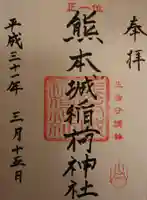 奉拝
正一位
熊本城稲荷神社
平成三十一年 三月十五日